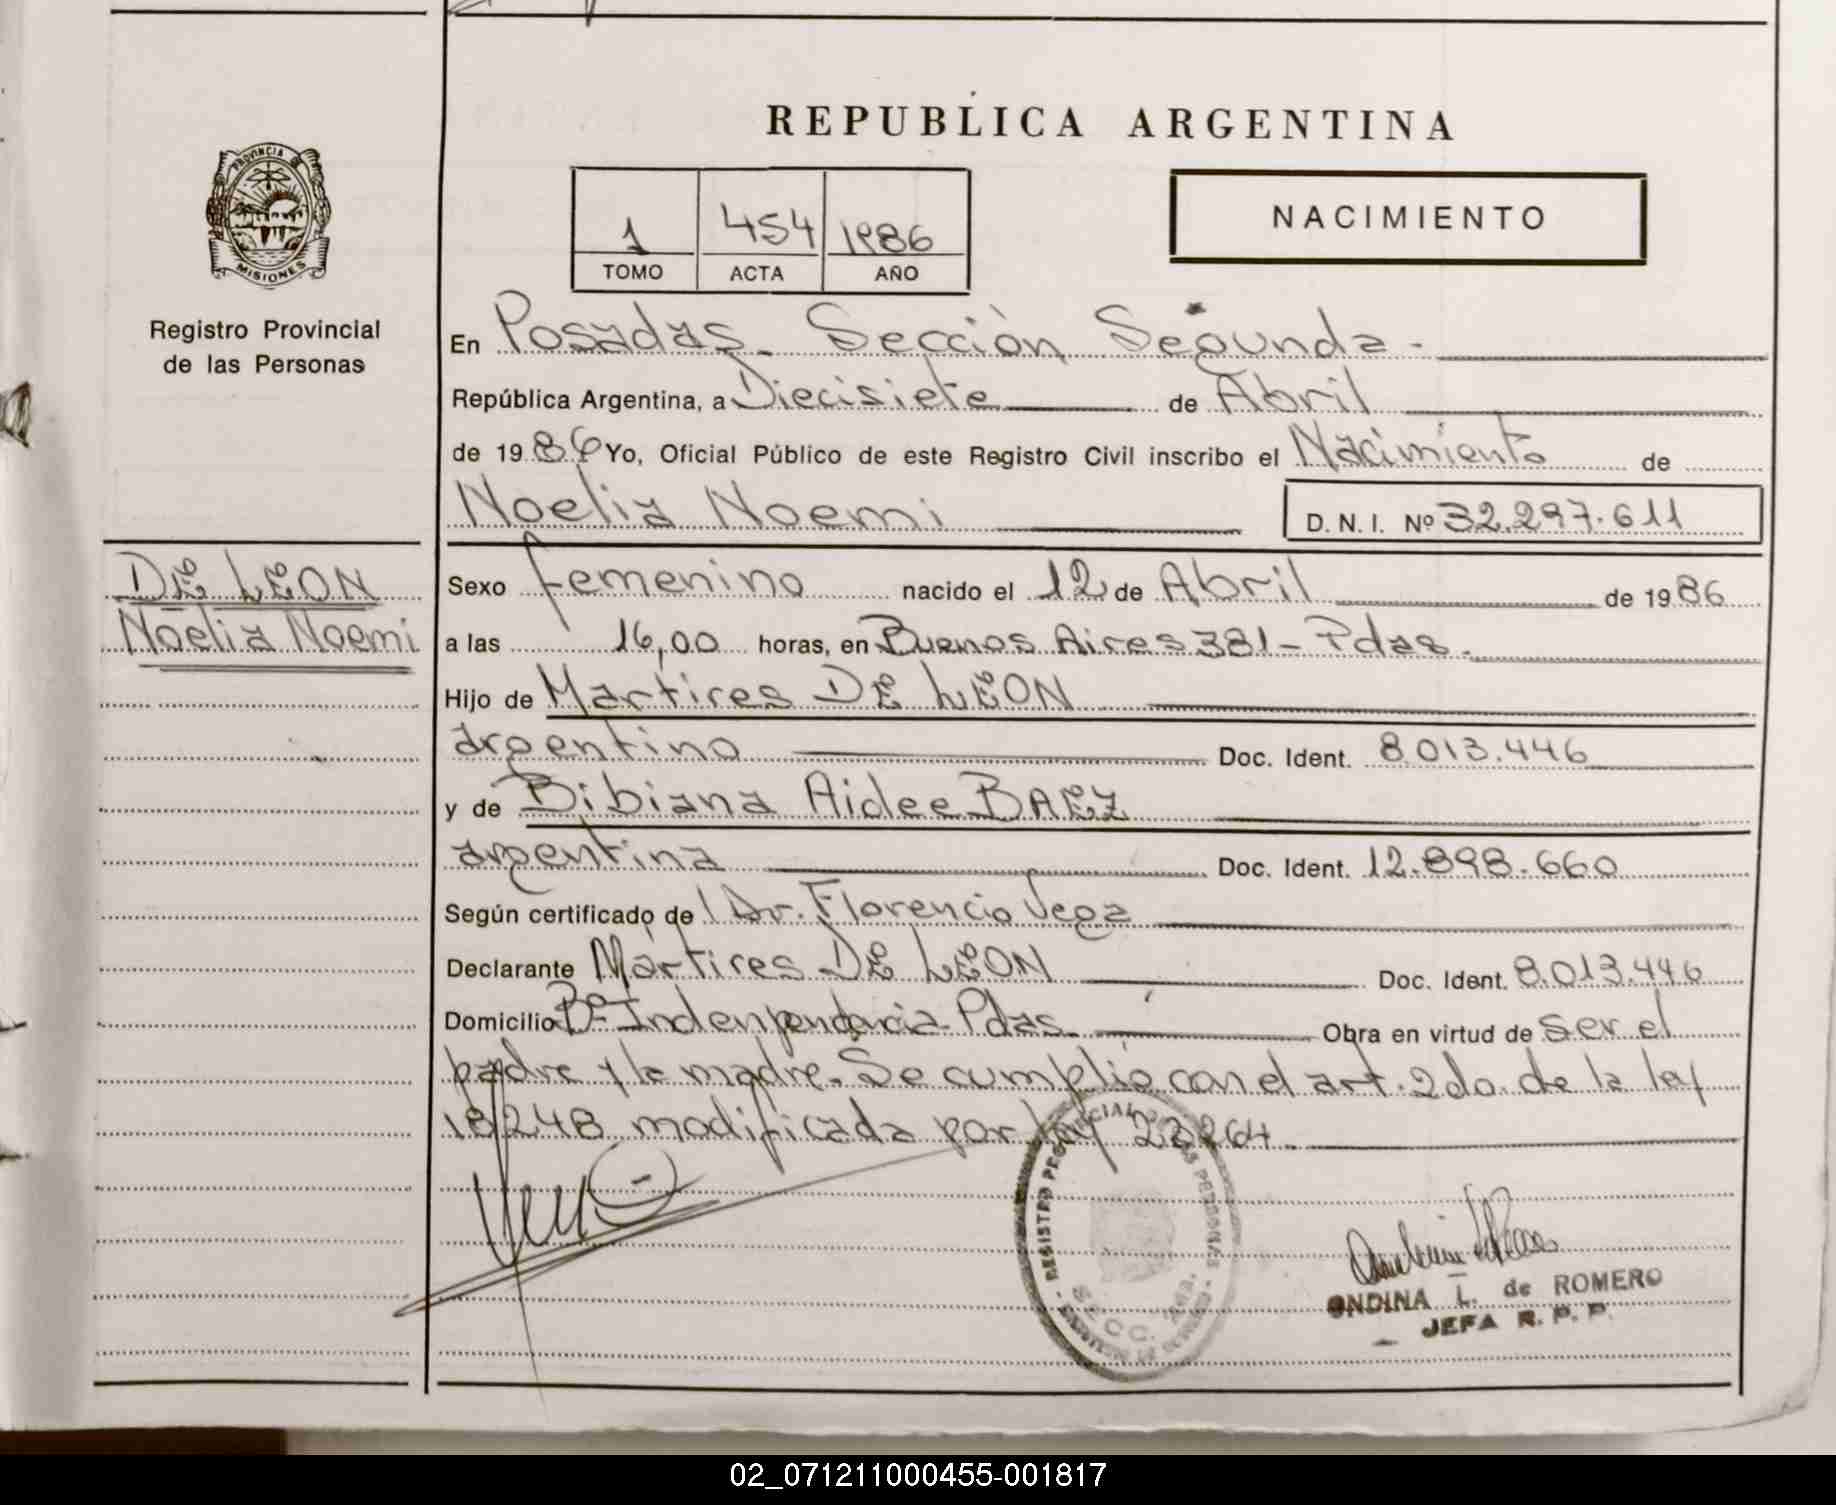 REPUBLICA ARGENTINA
PROVINCIA DE
MISIONES
Registro Provincial
de las Personas
1 454 1986
TOMO ACTA AÑO
NACIMIENTO
En Posadas - Sección Segunda -
República Argentina, a Diecisiete de Abril
de 1986 Yo, Oficial Público de este Registro Civil inscribo el Nacimiento de
Noelia Noemi D.N.I. Nº 32.297.611
DE LEON
Noelia Noemi
Sexo femenino nacido el 12 de Abril de 1986
a las 16,00 horas, en Buenos Aires 381 - Pdas.
Hijo de Martires DE LEON
argentino Doc. Ident. 8.013.446
y de Bibiana Aidee BAEZ
argentina Doc. Ident. 12.898.660
Según certificado de Dr. Florencio Vega
Declarante Martires DE LEON Doc. Ident. 8.013.446
Domicilio Bº Indenpendencia Pdas. Obra en virtud de ser el
padre y la madre. Se cumplió con el art. 2do. de la ley
18248 modificada por ley 23264.
REGISTRO PROVINCIAL DE LAS PERSONAS
SECC.
ONDINA L. de ROMERO
JEFA R. P. P.
02_071211000455-001817